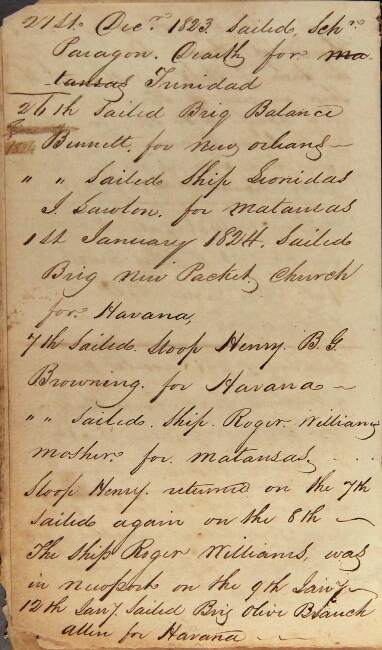 21st Decr. 1823 Sailed, Schr.
Paragon. Dearth for ma-
tansas Trinidad
26th Sailed Brig Balance
Bennett, for new orleans
" " Sailed Ship Leonidas
J. Lawton. for matansas
1st January 1824. Sailed
Brig new Packet, Church
for. Havana,
7th Sailed. Sloop Henry. B. G.
Browning. for Havana
" " Sailed. Ship. Roger. Williams
mosher. for. matansas,
Sloop Henry. returned on the 7th
Sailed again on the 8th
The Ship Roger Williams, was
in newport on the 9th Jany
12th Jany. Sailed Brig Olive Branch
allen for Havana